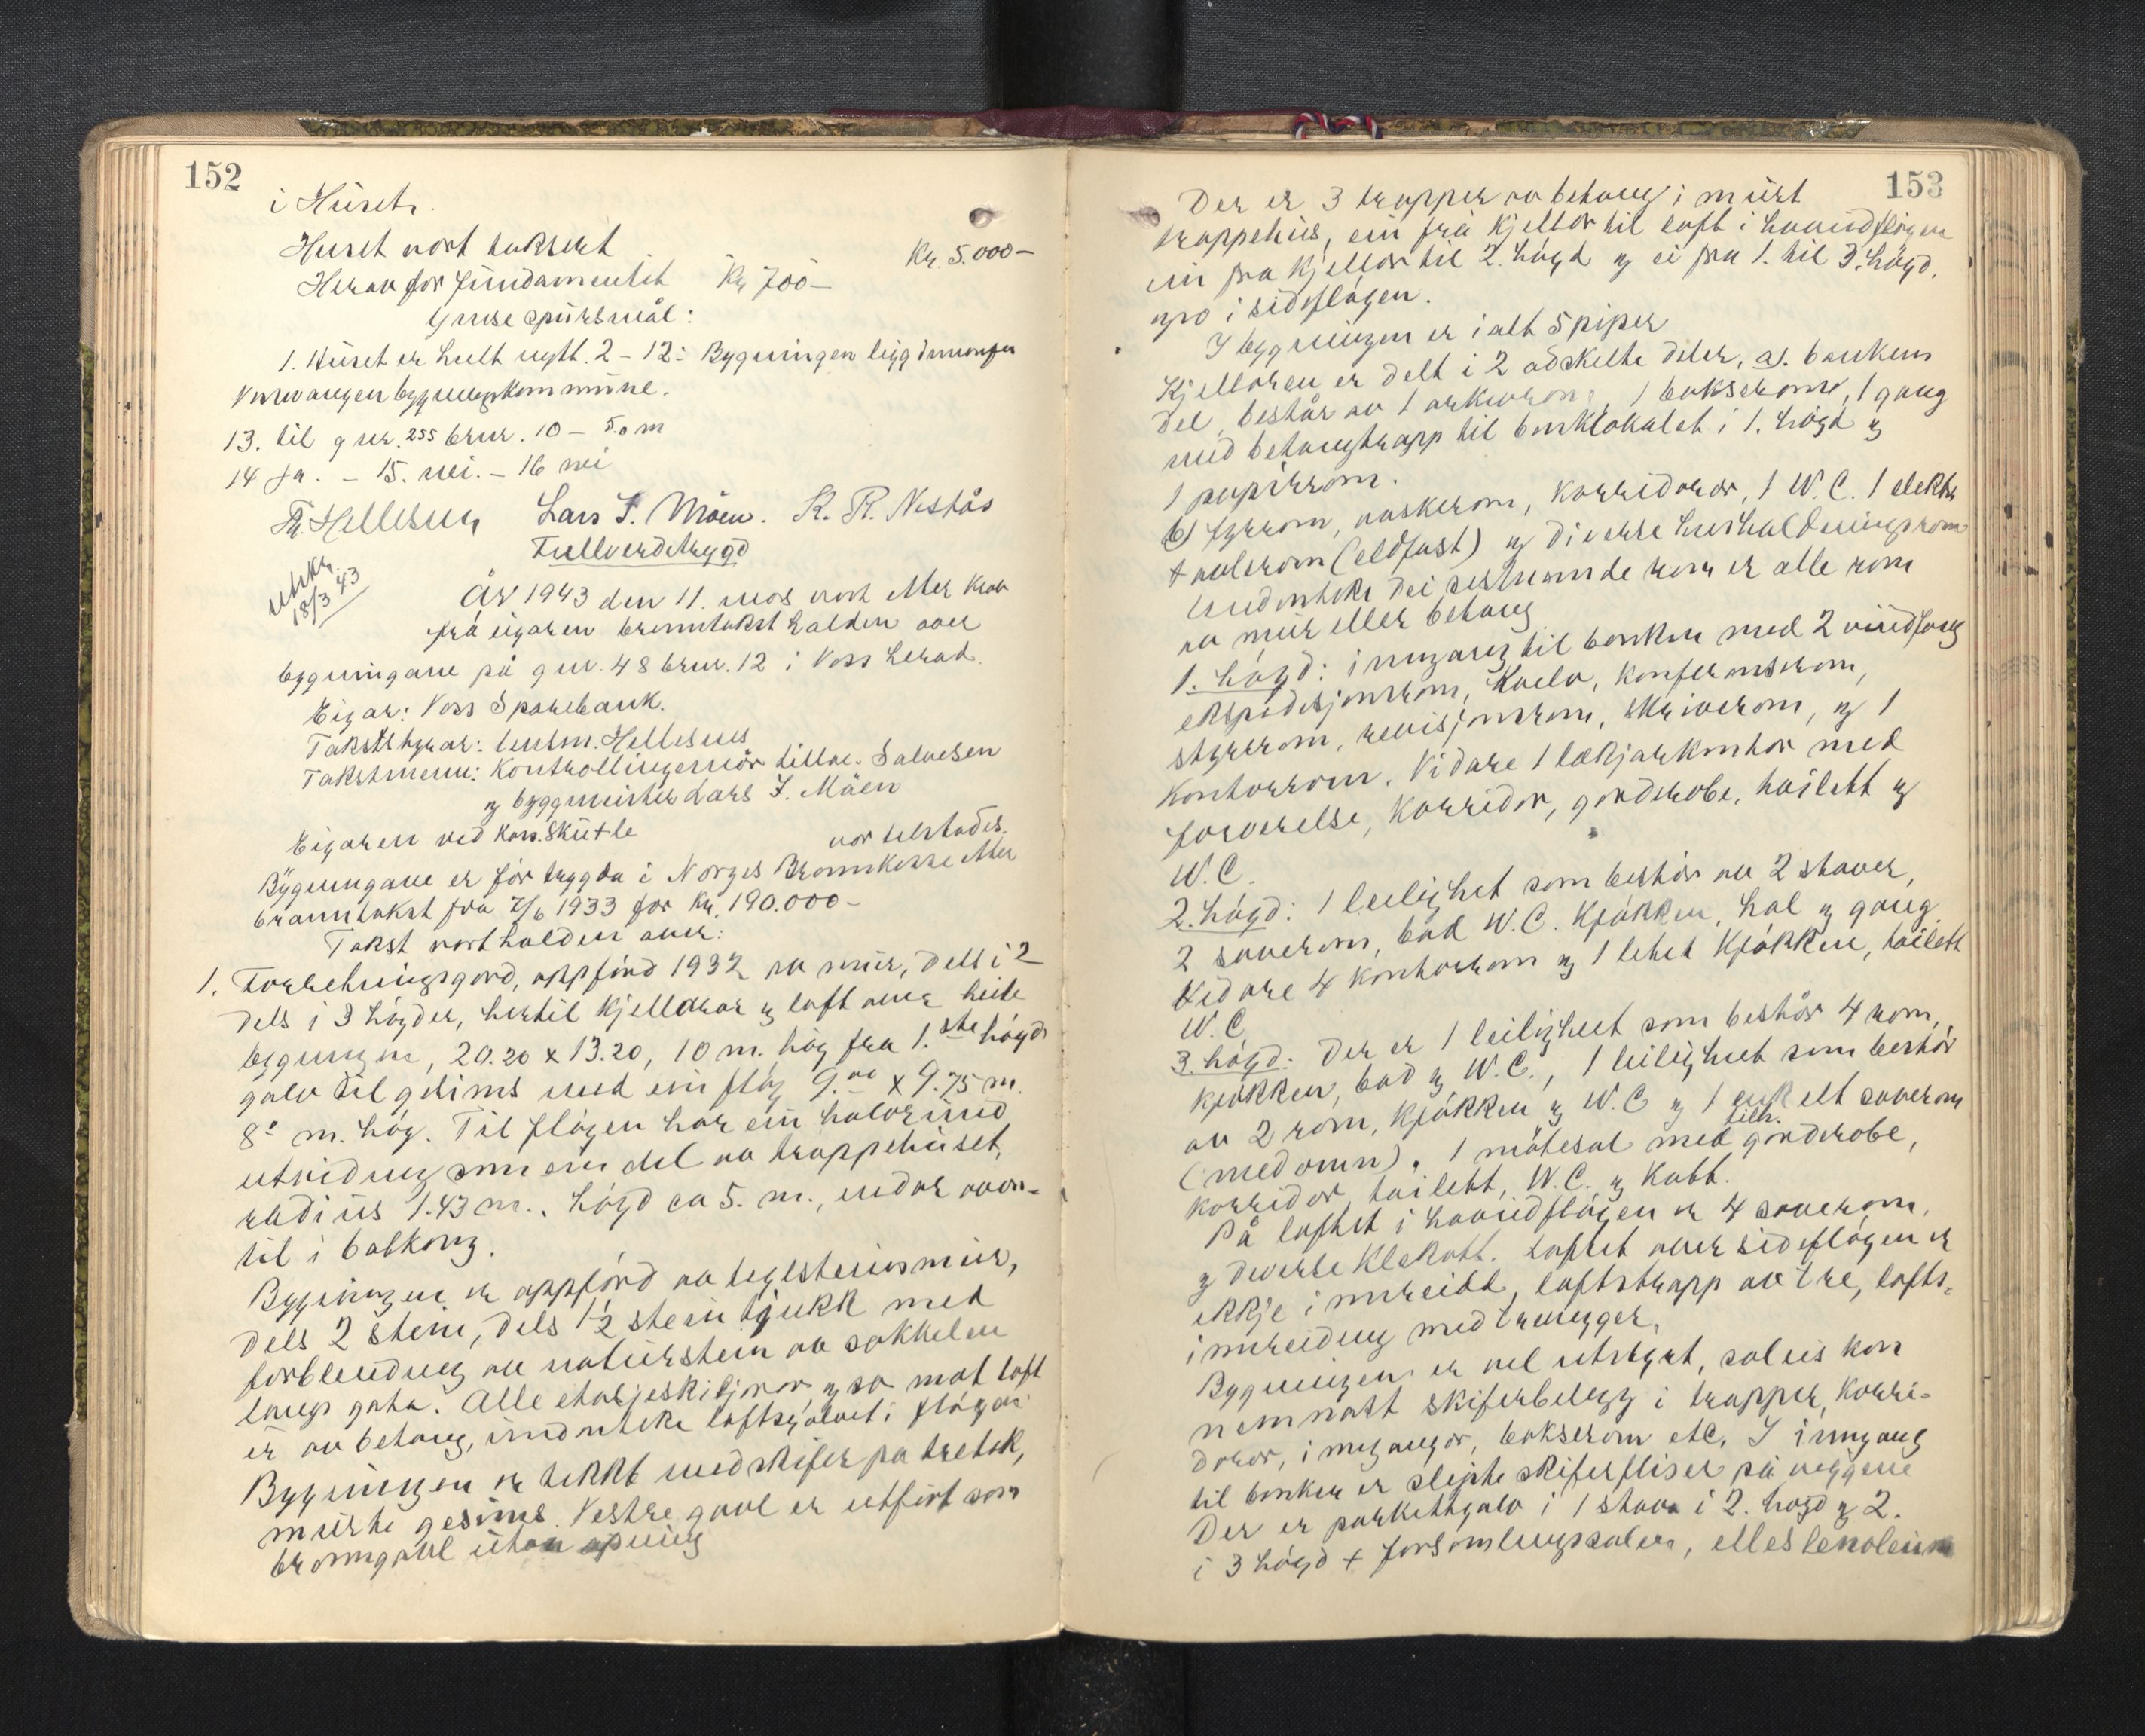 152
i Huset.
Huset vort taksert Kr. 5.000-
Herav for fundamentet Kr 700-
Ymse spursmål:
1. Huset er heilt nytt. 2 - 12: Bygningen ligg innanfor
Vossevangen bygningskommune.
13. til gnr. 255 brnr. 10 - 5.0 m
14 Ja. - 15. nei. - 16 nei
Hellesnes Lars I. Möen. K. R. Nestås
Fullverdetrygd
utskr.
18/3 43
År 1943 den 11. mars vart etter krav
frå eigaren branntakst halden over
bygningane på gnr. 48 brnr. 12 i Voss herad.
Eigar: Voss Sparebank.
Takststyrar: lensm. Hellesnes
Takstmenn: Kontrollingeniör Salvesen
og byggmeister Lars I. Möen
Eigaren ved Kass. Skutle var tilstades.
Bygningane er för trygda i Norges Brannkasse etter
branntakst fra 7/6 1933 for kr. 190.000-
Takst vart halden over:
1. Forretningsgard, oppförd 1932 av mur, dels i 2
dels i 3 högder, hertil kjellarar og loft over heile
bygningen, 20.20 x 13.20, 10 m. hög fra 1.ste högds
golv til gesims med ein flöy 9.00 x 9.75 m.
8° m. hög. Til flöyen har ein halvrund
utviding som ein del av trappehuset,
radius 1.43 m., högd ca 5. m., endar oven-
til i balkong.
Bygningen er oppförd av teglsteinsmur,
dels 2 stein, dels 1½ stein tjukk med
forblending av naturstein av sokkelen
langs gata. Alle etasjeskiljonar og so mot loft
er av betong, undateke loftsgolvet i flöyen
Bygningen er tekkt med skifer på tretak,
murte gesims. Vestre gavl er utfört som
branngavl utan opning
153
Der er 3 trapper av betong i murt
trappehus, ein frå kjellar til loft i hovudflöyen
ein fra kjellar til 2. högd og ei fra 1. til 3. högd.
i sideflöyen.
I bygningen er i alt 5 piper
Kjellaren er delt i 2 adskilte deler, a). bankens
del, består av 1 arkivrom, 1 bokserom, 1 gang
med betongtrapp til banklokalet i 1. högd og
1 papirrom.
b) fyrrom, vaskerom, korridorar, 1 W.C. 1 elektr
tavlerom (eldfast) og diverse hushaldningsrom
Undanteke dei sistnemnde rom er alle rom
av mur eller betong
1. högd: inngang til banken med 2 vindfang
ekspedisjonsrom, kvelv, konferanserom,
styrerom, revisjonsrom, skriverom, og 1
kontorrom. Vidare 1 lækjarkontor med
forverelse, korridor, garderobe, toilett og
W.C.
2. högd: 1 leilighet som består av 2 stover,
2 soverom, bad W.C. kjökken, hal og gang.
Vidare 4 kontorrom og 1 letet kjökken, toilett
W.C
3. högd: Der er 1 leilighet som består 4 rom,
kjökken, bad og W.C., 1 leilighet som består
av 2 rom, kjökken og W.C og 1 enkelt soverom
(med omn). 1 mötesal med tilh. garderobe,
korridor, toilett, W.C. og kott.
På loftet i hovudflöyen er 4 soverom,
og diverse klekott. Loftet over sideflöyen er
ikkje innreidd, loftstrapp av tre, lofts-
innreiding med trevegger.
Bygningen er vel utstyrt, soleis kan
nemnast skiferbelegg i trapper, korri-
dorar, inngangar, bokserom etc. I inngang
til banken er slipte skiferfliser på veggene
Der er parkettgolv i 1 stova i 2. högd og 2.
i 3 högd + forsamlingssalen, elles lenoleum